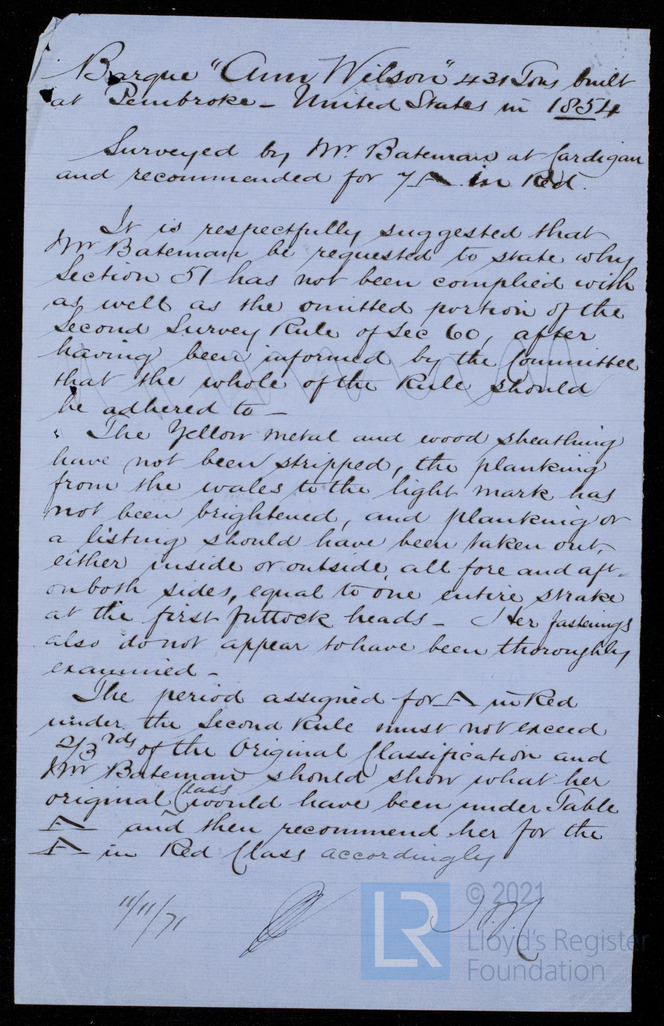 Barque "Ann Wilson" 431 Tons built
at Pembroke - United States in 1854
Surveyed by Mr. Bateman at Cardigan
and recommended for 7 A in Red.
It is respectfully suggested that
Mr Bateman be requested to state why
Section 51 has not been complied with
as well as the omitted portion of the
Second Survey Rule of Sec 60, after
having been informed by the Committee
that the whole of the Rule should
be adhered to -
The Yellow metal and wood sheathing
have not been stripped, the planking
from the wales to the light mark has
not been brightened, and planking or
a listing should have been taken out,
either inside or outside, all fore and aft
on both sides, equal to one entire strake
at the first futtock heads - Her fastenings
also do not appear to have been thoroughly
examined -
The period assigned for A in Red
under the Second Rule must not exceed
2/3rds of the Original Classification and
Mr Bateman should show what her
original Class would have been under Table
A and then recommend her for the
A in Red Class accordingly
11/11/71
LR © 2021
Lloyd's Register
Foundation